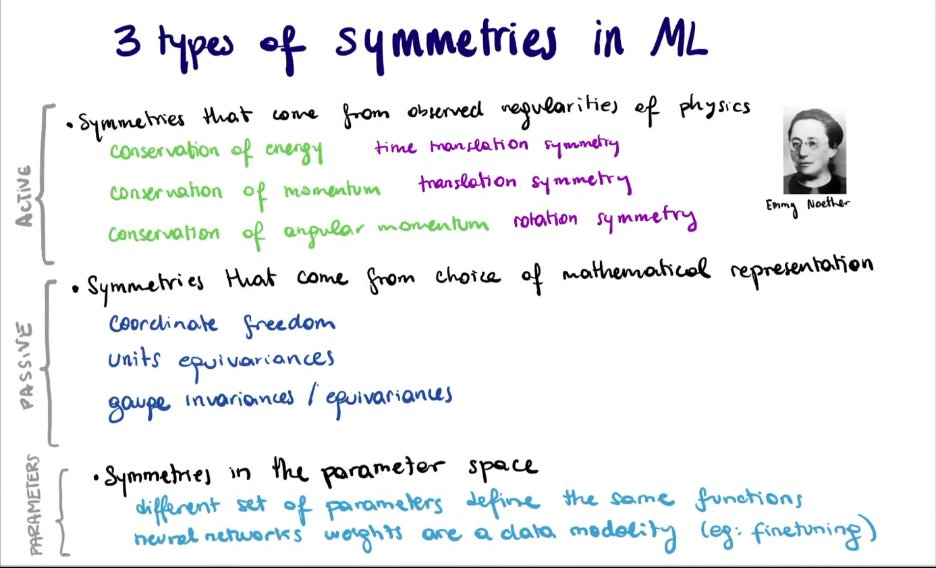 3 types of symmetries in ML
• Symmetries that come from observed regularities of physics
conservation of energy time translation symmetry
conservation of momentum translation symmetry
conservation of angular momentum rotation symmetry
Emmy Noether
ACTIVE
• Symmetries that come from choice of mathematical representation
coordinate freedom
units equivariances
gauge invariances / equivariances
PASSIVE
• Symmetries in the parameter space
different set of parameters define the same functions
neural networks weights are a data modality (eg: finetuning)
PARAMETERS